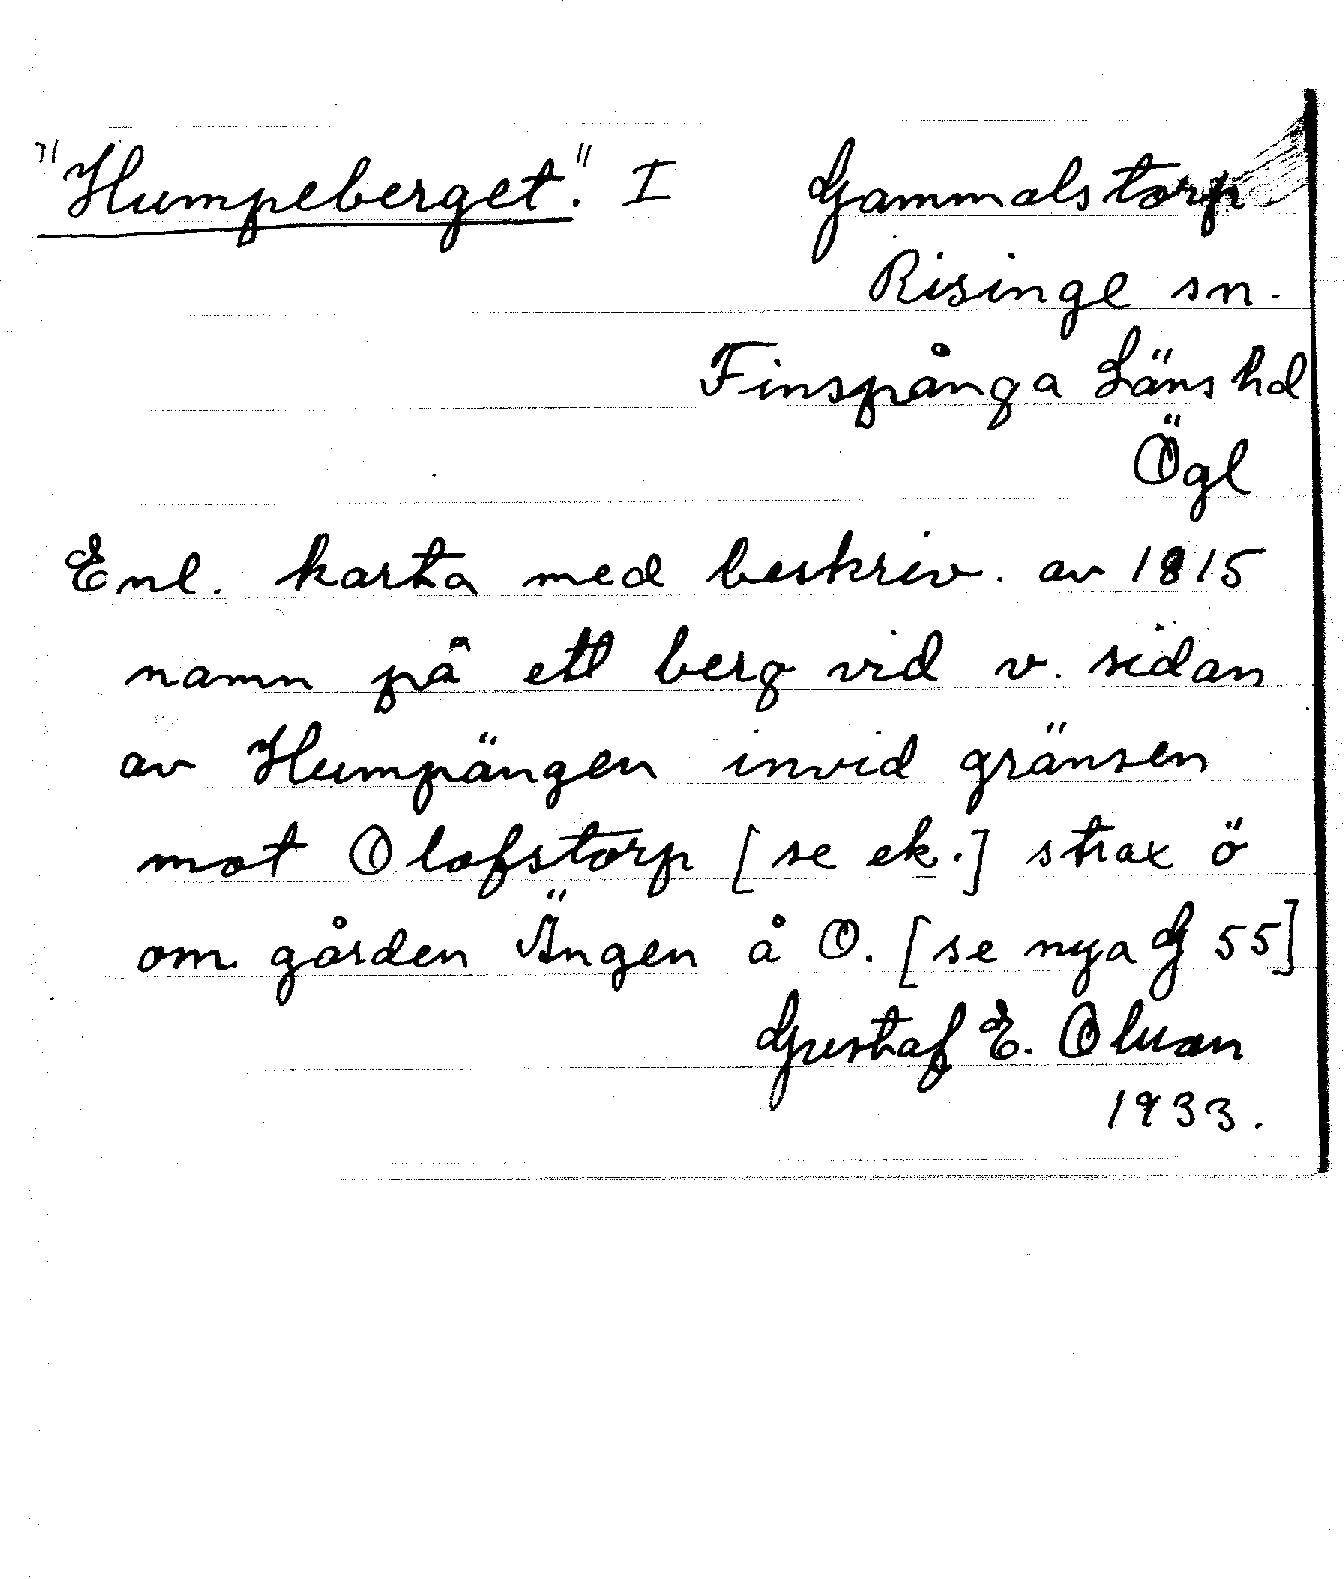 "Humpeberget." I Gammalstorp
Risinge sn.
Finspånga Läns hd
Ögl
Enl. karta med beskriv. av 1815
namn på ett berg vid v. sidan
av Humpängen invid gränsen
mot Olofstorp [se ek.] strax ö
om gården Ängen å O. [se nya G 55]
Gustaf E. Olsson
1933.